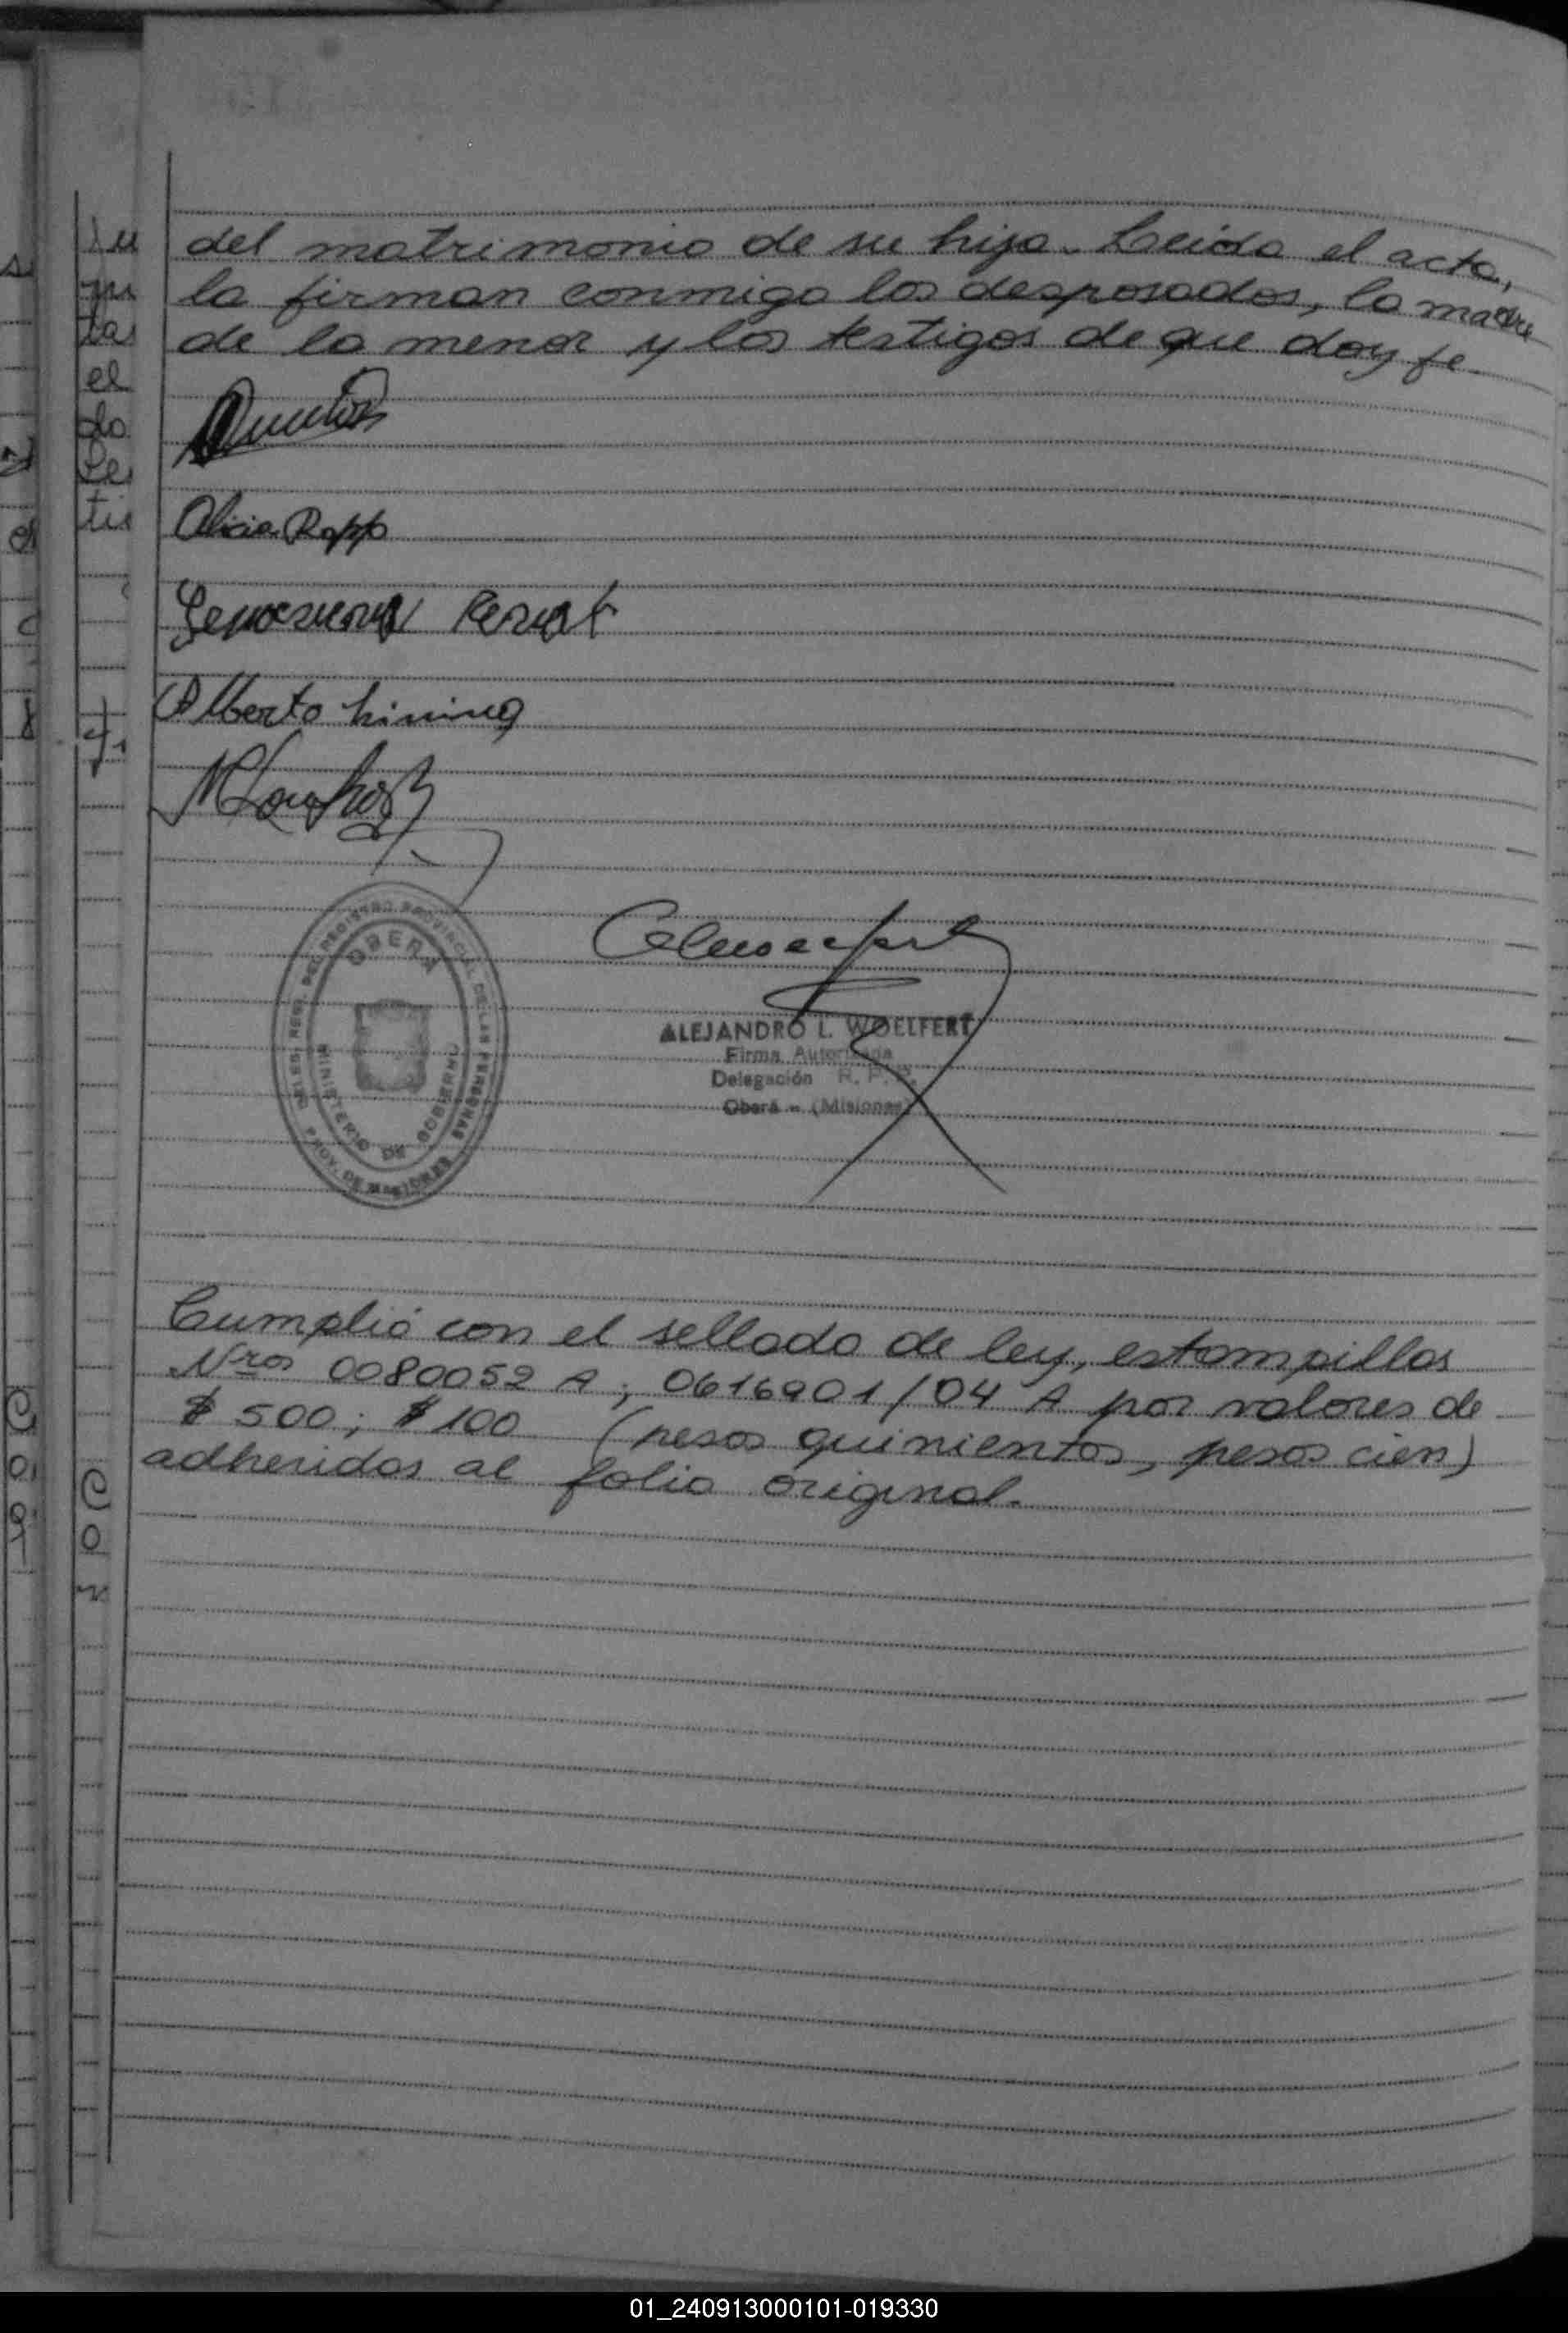 del matrimonio de su hija. Leída el acta,
la firman conmigo los desposados, la madre
de la menor y los testigos de que doy fe.
Alicia Rapp
Alberto
OBERA
MINISTERIO DE GOBIERNO
PROV. DE MISIONES
ALEJANDRO L. WOELFERT
Firma Autorizada
Delegación R. P. P.
Oberá - (Misiones)
Cumplió con el sellado de ley, estampillas
Nros 0080052 A; 0616901/04 A por valores de
$ 500; $ 100 (pesos quinientos, pesos cien)
adheridas al folio original.
01_240913000101-019330